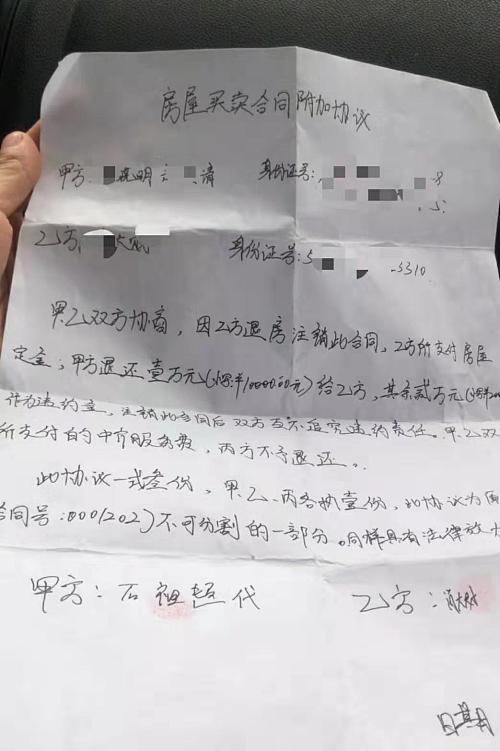 房屋买卖合同附加协议
甲方: 明 清 身份证号: 8
5
乙方: 身份证号:5 5310
甲.乙双方协商,因乙方退房注销此合同,乙方所支付房屋
定金;甲方退还壹万元(小写¥10000.00元)给乙方,其余贰万元(小写
作为违约金,注销此合同后双方互不追究违约责任。甲.乙双
所支付的中介服务费,丙方不予退还。
此协议一式叁份,甲.乙.丙各执壹份,此协议为
合同号:0001202)不可分割的一部分。同样具有法律效
甲方:石祖 代 乙方:
日期